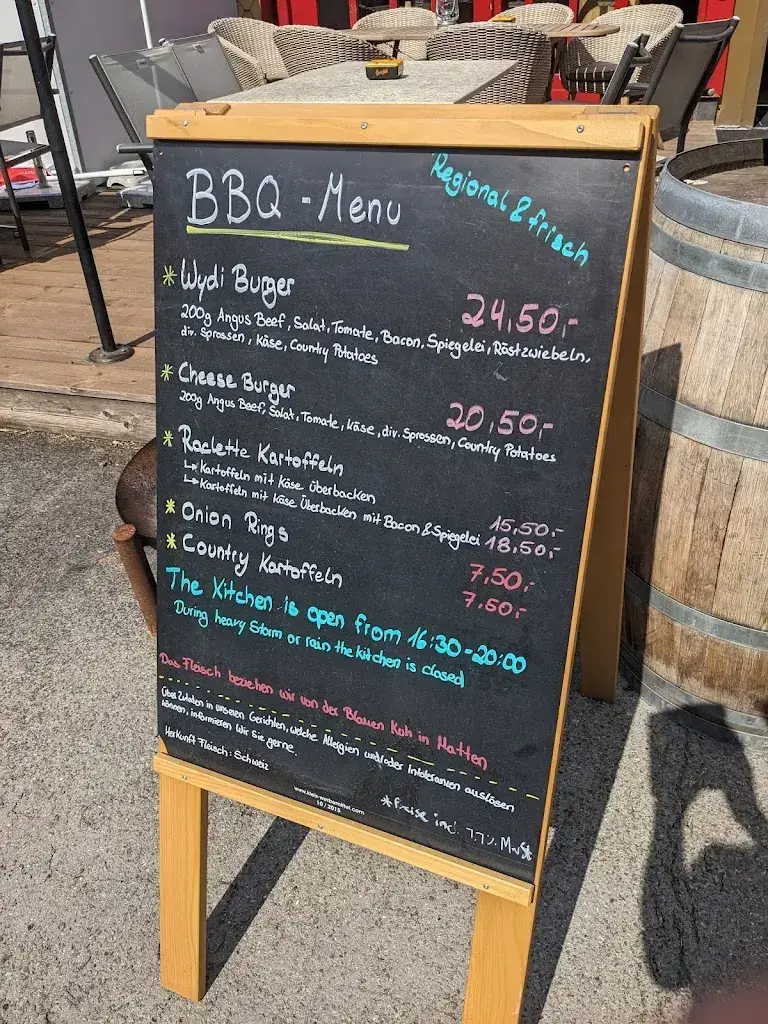 BBQ - Menu
Regional & frisch
* Wydi Burger
24,50,-
200g Angus Beef, Salat, Tomate, Bacon, Spiegelei, Röstzwiebeln,
div. Sprossen, Käse, Country Potatoes
* Cheese Burger
20,50,-
200g Angus Beef, Salat, Tomate, Käse, div. Sprossen, Country Potatoes
* Raclette Kartoffeln
↳ Kartoffeln mit Käse überbacken 15,50,-
↳ Kartoffeln mit Käse Überbacken mit Bacon & Spiegelei 18,50,-
* Onion Rings 7,50,-
* Country Kartoffeln 7,50,-
The Kitchen is open from 16:30-20:00
During heavy Storm or rain the kitchen is closed
Das Fleisch beziehen wir von der Blauen Kuh in Matten
Über Zutaten in unseren Gerichten, welche Allergien und/oder Intoleranzen auslösen
können, informieren Wir Sie gerne.
Herkunft Fleisch: Schweiz
10 / 2015
* Preise incl. 7,7% MwSt